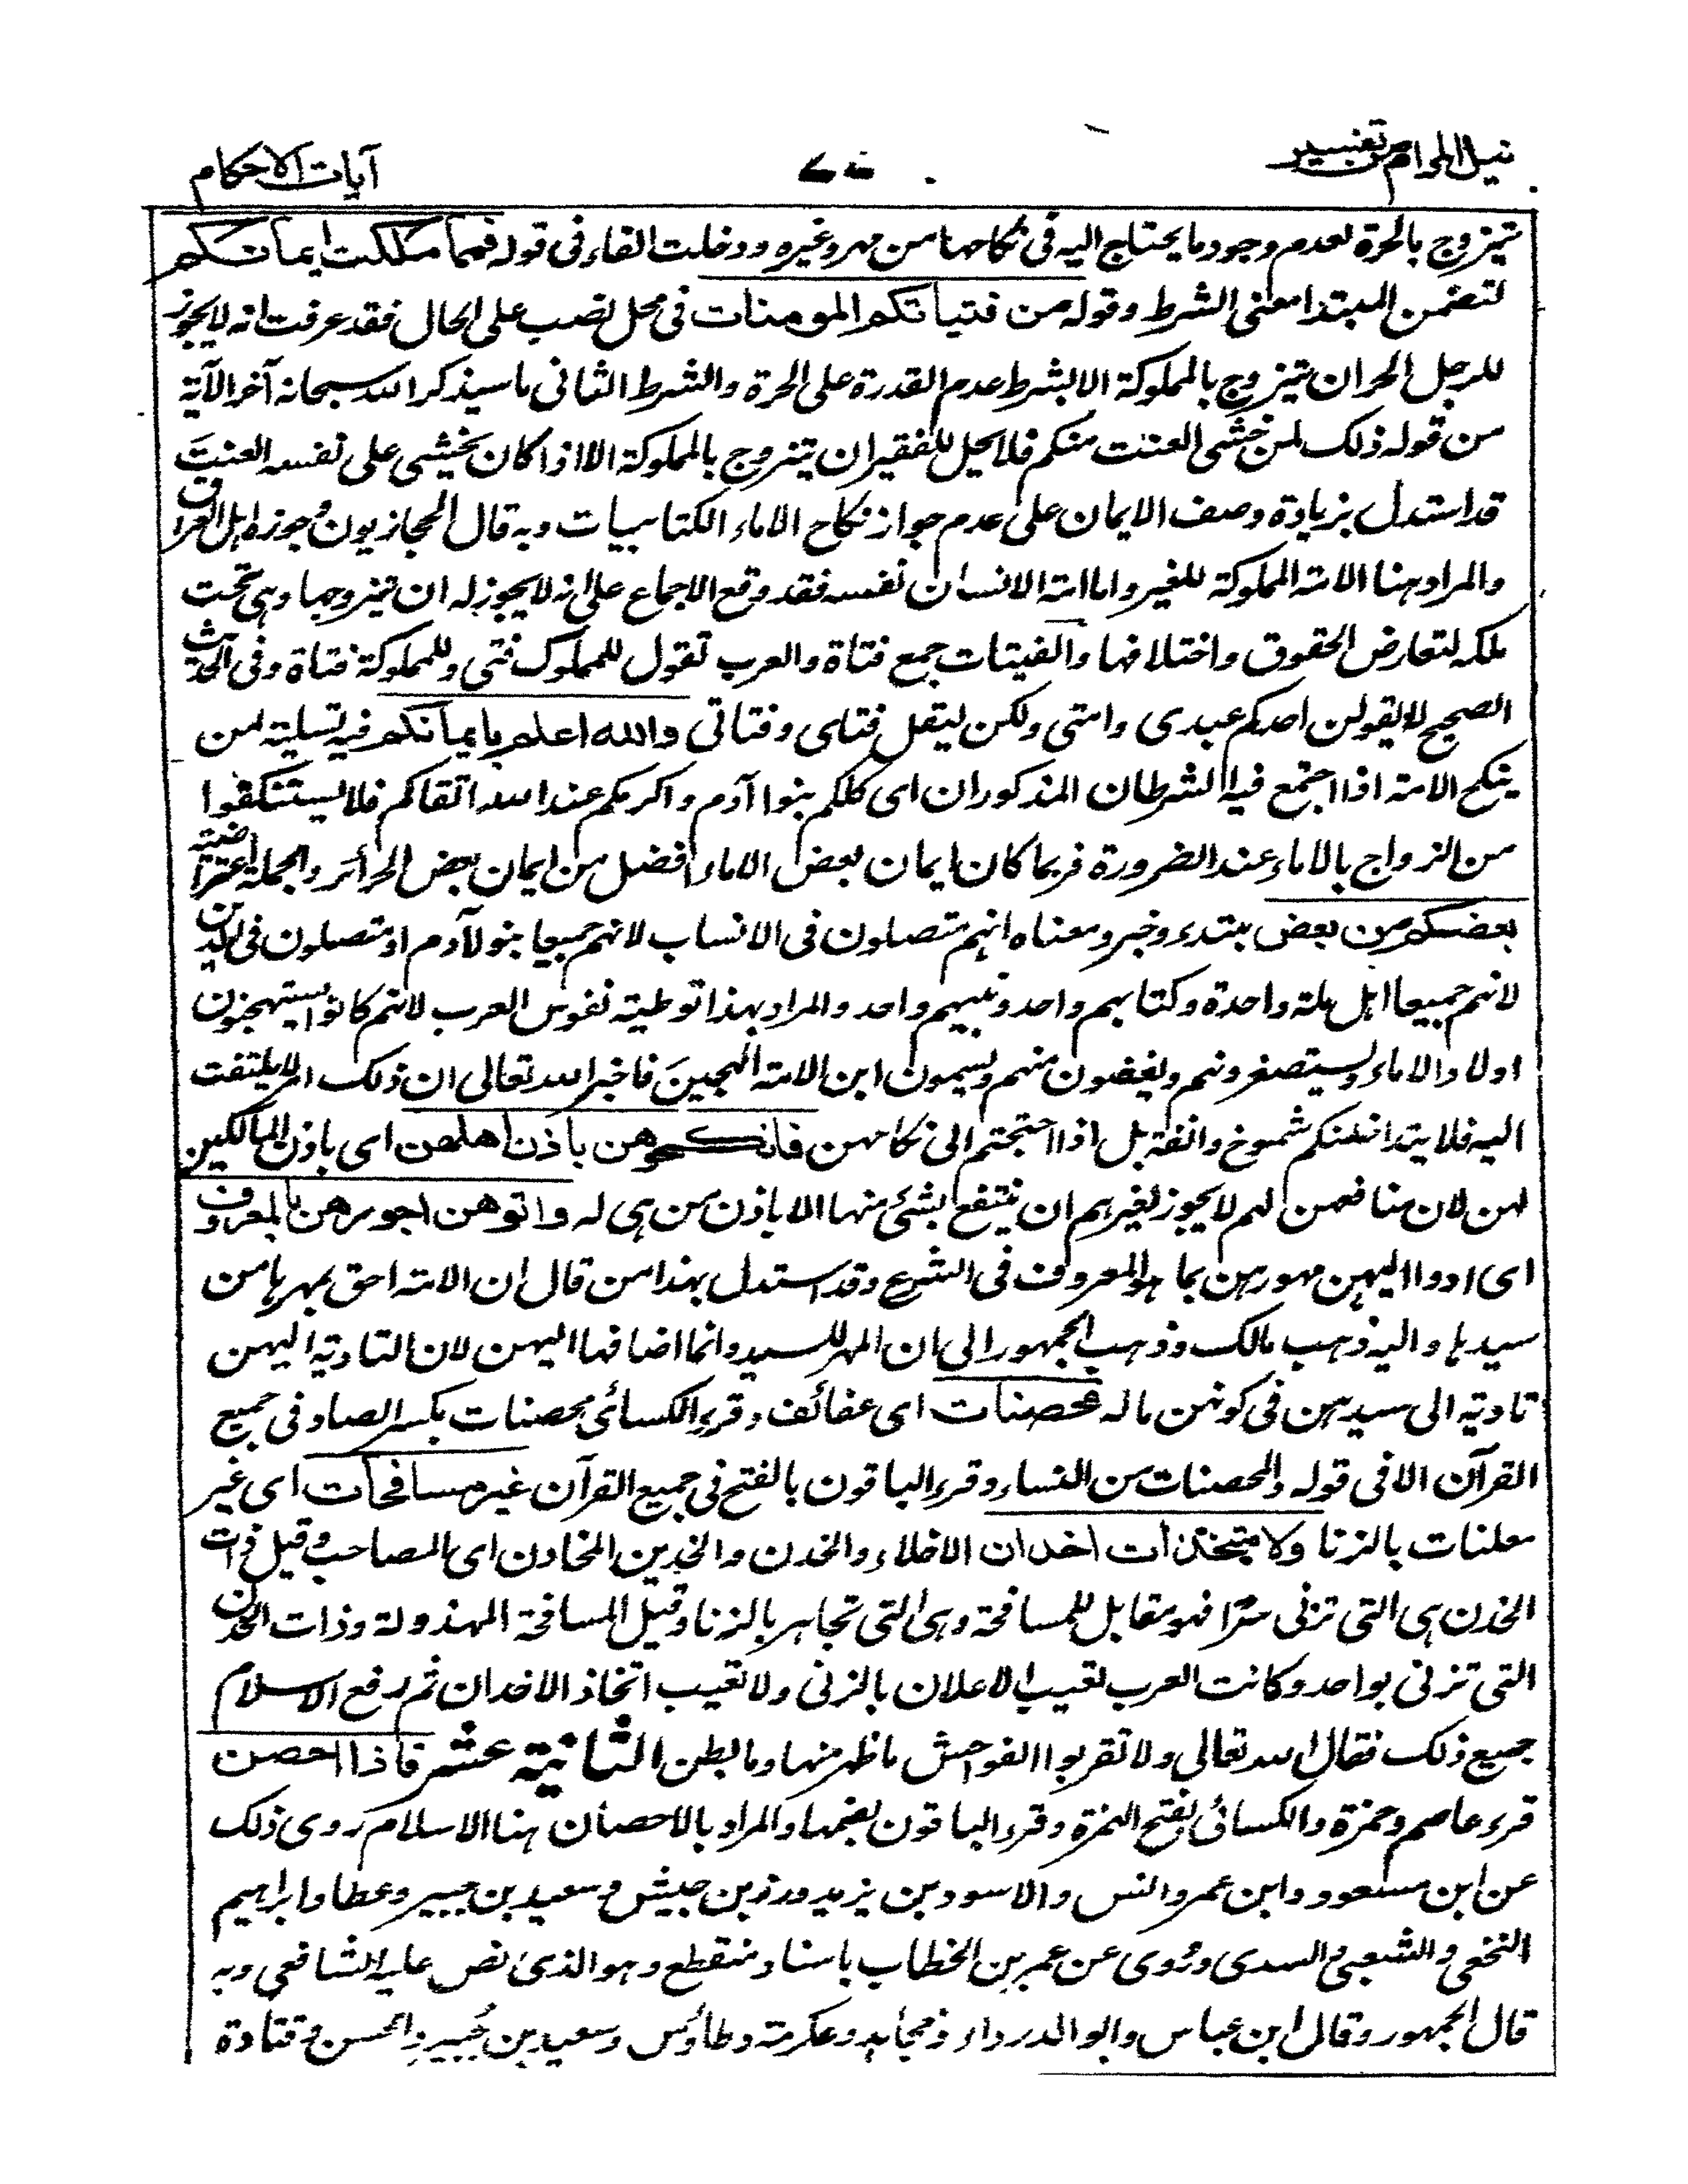 نيل المرام من تفسير
٧٠
آيات الاحكام
يتزوج بالحرة لعدم وجود ما يحتاج اليه فى نكاحها من مهر وغيره ودخلت الفاء فى قوله فمما ملكت ايمانكم
لتضمن المبتدا معنى الشرط وقوله من فتياتكم المومنات فى محل نصب على الحال فقد عرفت انه لا يجوز
للرجل الحر ان يتزوج بالمملوكة الا بشرط عدم القدرة على الحرة والشرط الثانى ما سيذكر الله سبحانه آخر الآية
من قوله ذلك لمن خشى العنت منكم فلا يحل للفقير ان يتزوج بالمملوكة الا اذا كان يخشى على نفسه العنت
قد استدل بزيادة وصف الايمان على عدم جواز نكاح الاماء الكتابيات وبه قال الحجازيون وجوزه اهل العراق
والمراد هنا الامة المملوكة للغير واما امة الانسان نفسه فقد وقع الاجماع على انه لا يجوز له ان يتزوجها وهى تحت
ملكه لتعارض الحقوق واختلافها والفتيات جمع فتاة والعرب تقول للمملوك فتى وللمملوكة فتاة وفى الحديث
الصحيح لا يقولن احدكم عبدى وامتى ولكن ليقل فتاى وفتاتى والله اعلم بايمانكم فيه تسلية لمن
ينكح الامة اذا اجتمع فيه الشرطان المذكوران اى كلكم بنوا آدم واكرمكم عند الله اتقاكم فلا يستنكفوا
من الزواج بالاماء عند الضرورة فربما كان ايمان بعض الاماء افضل من ايمان بعض الحرائر والجملة اعتراضية
بعضكم من بعض مبتدء وخبر ومعناه انهم متصلون فى الانساب لانهم جميعا بنو لآدم او متصلون فى الدين
لانهم جميعا اهل ملة واحدة وكتابهم واحد ونبيهم واحد والمراد بهذا توطية نفوس العرب لانهم كانوا يستهجنون
اولاد الاماء ويستصغرونهم ويغضون منهم ويسمون ابن الامة الهجين فاخبر الله تعالى ان ذلك امر لا يلتفت
اليه فلا يتداخلنكم شموخ وانفة بل اذا احتجتم الى نكاحهن فانكحوهن باذن اهلهن اى باذن المالكين
لهن لان منافعهن لهم لا يجوز لغيرهم ان ينتفع بشئ منها الا باذن من هى له واتوهن اجورهن بالمعروف
اى ادوا اليهن مهورهن بما هو المعروف فى الشرع وقد استدل بهذا من قال ان الامة احق بمهرها من
سيدها واليه ذهب مالك وذهب الجمهور الى ان المهر للسيد وانما اضافها اليهن لان التادية اليهن
تادية الى سيدهن فى كونهن ماله محصنات اى عفائف وقرء الكسائى محصنات بكسر الصاد فى جميع
القرآن الا فى قوله والمحصنات من النساء وقرء الباقون بالفتح فى جميع القرآن غير مسافحات اى غير
معلنات بالزنا ولا متخذات اخدان الاخلاء والخدن والخدين المخادن اى المصاحب وقيل ذات
الخدن هى التى تزنى سرا فهو مقابل للمسافحة وهى التى تجاهر بالزنا وقيل المسافحة المبذولة وذات الخدن
التى تزنى بواحد وكانت العرب تعيب الاعلان بالزنى ولا تعيب اتخاذ الاخدان ثم رفع الاسلام
جميع ذلك فقال الله تعالى ولا تقربوا الفواحش ما ظهر منها وما بطن الثانية عشر فاذا احصن
قرء عاصم وحمزة والكسائى بفتح الهمزة وقرء الباقون بضمها والمراد بالاحصان هنا الاسلام روى ذلك
عن ابن مسعود وابن عمر وانس والاسود بن يزيد وزر بن حبيش وسعيد بن جبير وعطا وابراهيم
النخعى والشعبى والسدى وروى عن عمر بن الخطاب باسناد منقطع وهو الذى نص عليه الشافعى وبه
قال الجمهور وقال ابن عباس وابو الدرداء ومجاهد وعكرمة وطاؤس وسعيد بن جبير والحسن وقتادة